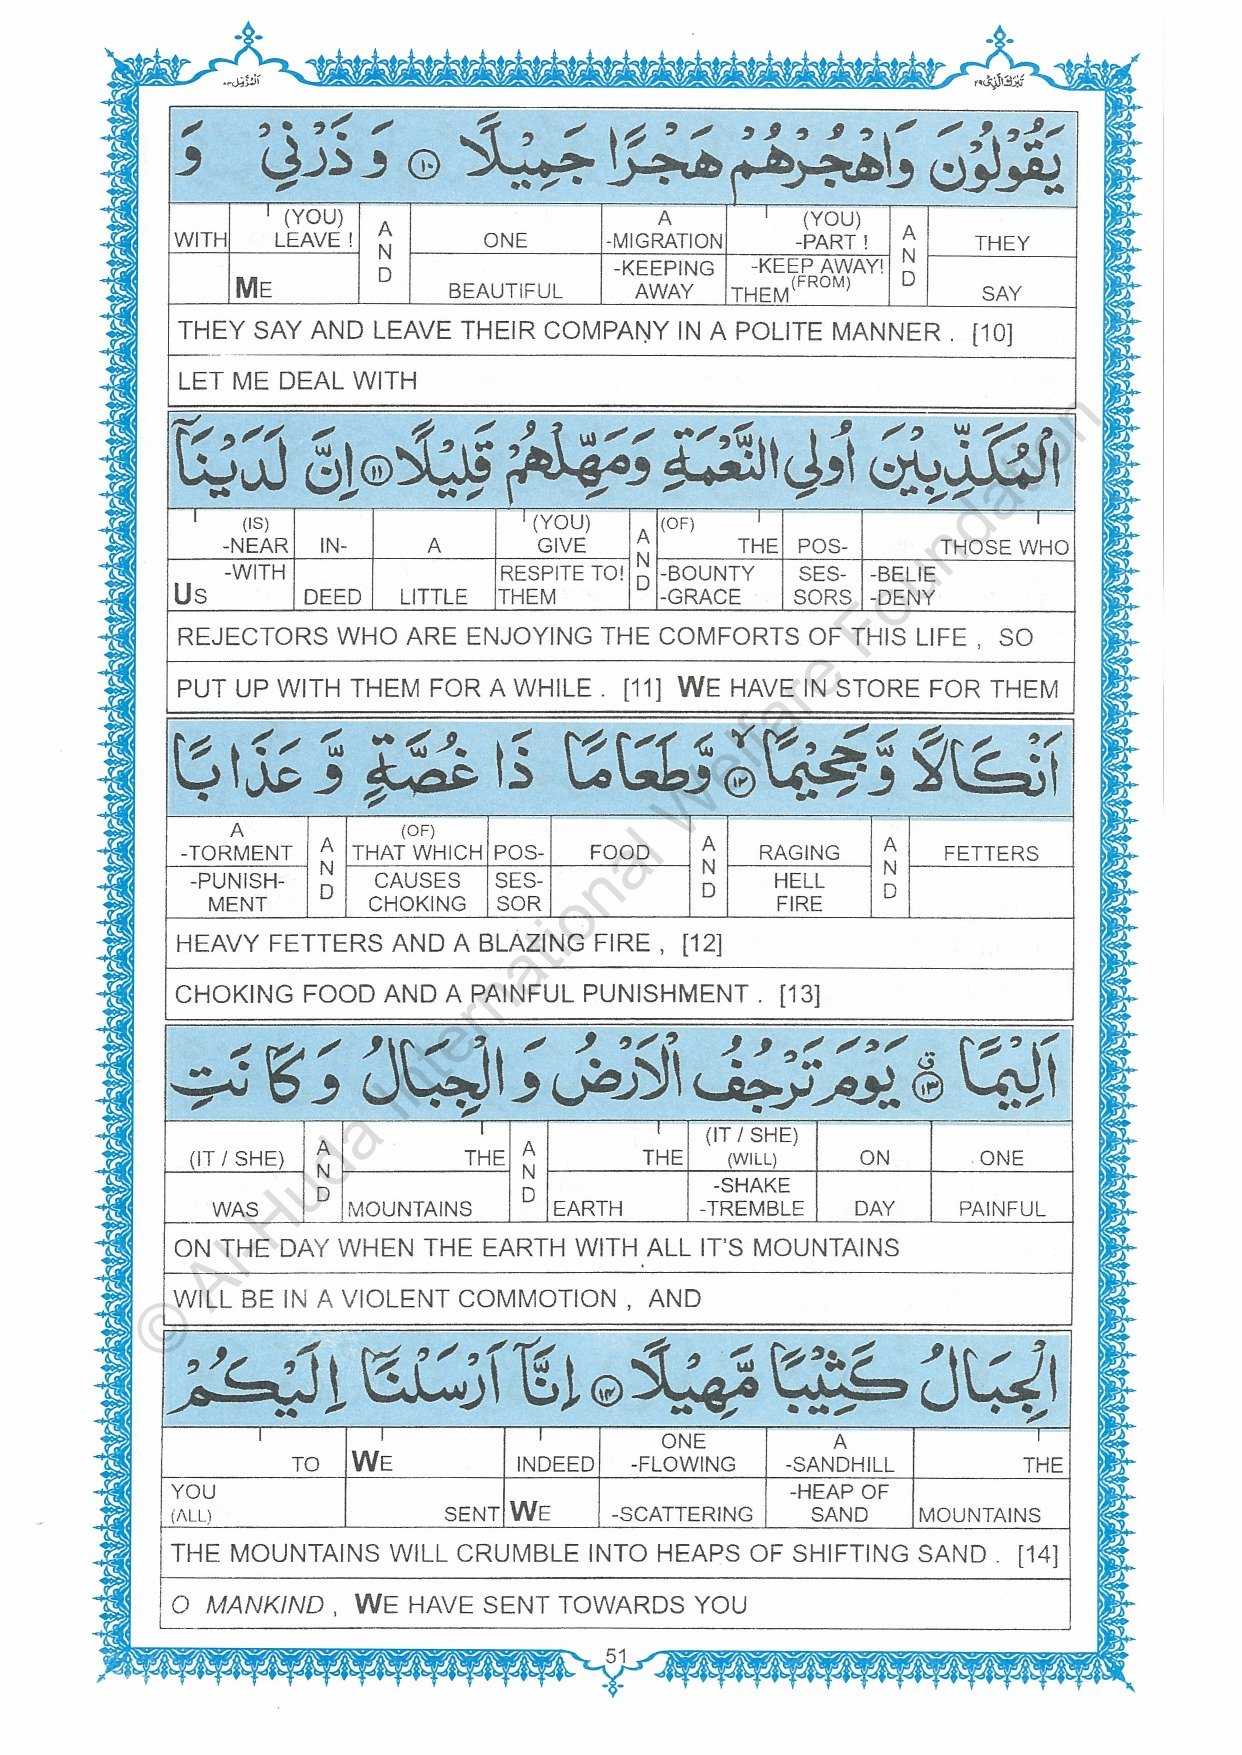 المزمل ٧٣
تبرك الذي ٢٩
يَقُوْلُوْنَ وَاهْجُرْهُمْ هَجْرًا جَمِيْلًا ⑩ وَ ذَرْنِيْ وَ
WITH (YOU) LEAVE ! AND ONE A -MIGRATION (YOU) -PART ! AND THEY
ME BEAUTIFUL -KEEPING AWAY -KEEP AWAY! (FROM) THEM SAY
THEY SAY AND LEAVE THEIR COMPANY IN A POLITE MANNER . [10]
LET ME DEAL WITH
الْمُكَذِّبِيْنَ اُولِي النَّعْمَةِ وَمَهِّلْهُمْ قَلِيْلًا ⑪ اِنَّ لَدَيْنَآ
(IS) -NEAR IN- A (YOU) GIVE AND (OF) THE POS- THOSE WHO
-WITH US DEED LITTLE RESPITE TO! THEM -BOUNTY -GRACE SES- SORS -BELIE -DENY
REJECTORS WHO ARE ENJOYING THE COMFORTS OF THIS LIFE , SO
PUT UP WITH THEM FOR A WHILE . [11] WE HAVE IN STORE FOR THEM
اَنْكَالًا وَّ جَحِيْمًا ⑫ وَّطَعَامًا ذَا غُصَّةٍ وَّ عَذَابًا
A -TORMENT AND (OF) THAT WHICH POS- FOOD AND RAGING AND FETTERS
-PUNISH- MENT CAUSES CHOKING SES- SOR HELL FIRE
HEAVY FETTERS AND A BLAZING FIRE , [12]
CHOKING FOOD AND A PAINFUL PUNISHMENT . [13]
اَلِيْمًا ⑬ ق يَوْمَ تَرْجُفُ الْاَرْضُ وَ الْجِبَالُ وَ كَانَتِ
(IT / SHE) AND THE AND THE (IT / SHE) (WILL) ON ONE
WAS MOUNTAINS EARTH -SHAKE -TREMBLE DAY PAINFUL
ON THE DAY WHEN THE EARTH WITH ALL IT'S MOUNTAINS
WILL BE IN A VIOLENT COMMOTION , AND
الْجِبَالُ كَثِيْبًا مَّهِيْلًا ⑭ اِنَّآ اَرْسَلْنَآ اِلَيْكُمْ
TO WE INDEED ONE -FLOWING A -SANDHILL THE
YOU (ALL) SENT WE -SCATTERING -HEAP OF SAND MOUNTAINS
THE MOUNTAINS WILL CRUMBLE INTO HEAPS OF SHIFTING SAND . [14]
O MANKIND , WE HAVE SENT TOWARDS YOU
51
© Al-Huda International Welfare Foundation